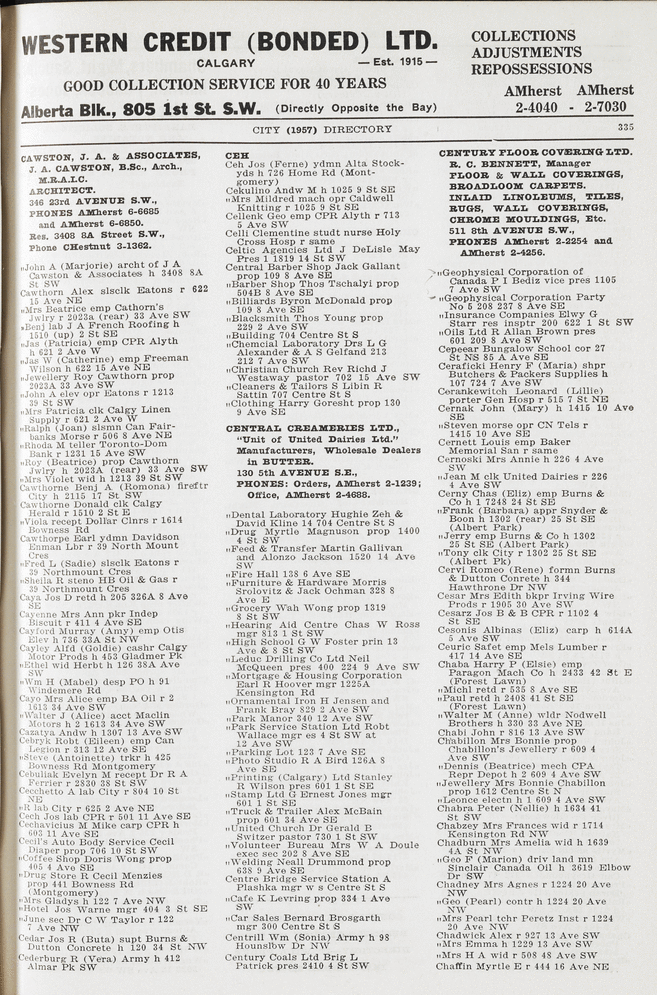 WESTERN CREDIT (BONDED) LTD.
CALGARY — Est. 1915 —
GOOD COLLECTION SERVICE FOR 40 YEARS
Alberta Blk., 805 1st St. S.W. (Directly Opposite the Bay)
COLLECTIONS
ADJUSTMENTS
REPOSSESSIONS
AMherst AMherst
2-4040 - 2-7030
CITY (1957) DIRECTORY 335
CAWSTON, J. A. & ASSOCIATES,
J. A. CAWSTON, B.Sc., Arch.,
M.R.A.I.C.
ARCHITECT.
346 23rd AVENUE S.W.,
PHONES AMherst 6-6685
and AMherst 6-6850.
Res. 3408 8A Street S.W.,
Phone CHestnut 3-1362.
"John A (Marjorie) archt of J A
Cawston & Associates h 3408 8A
St SW
Cawthorn Alex slsclk Eatons r 622
15 Ave NE
"Mrs Beatrice emp Cathorn's
Jwlry r 2023a (rear) 33 Ave SW
"Benj lab J A French Roofing h
1510 (up) 2 St SE
"Jas (Patricia) emp CPR Alyth
h 621 2 Ave W
"Jas W (Catherine) emp Freeman
Wilson h 622 15 Ave NE
"Jewellery Roy Cawthorn prop
2023A 33 Ave SW
"John A elev opr Eatons r 1213
39 St SW
"Mrs Patricia clk Calgy Linen
Supply r 621 2 Ave W
"Ralph (Joan) slsmn Can Fair-
banks Morse r 506 8 Ave NE
"Rhoda M teller Toronto-Dom
Bank r 1231 15 Ave SW
"Roy (Beatrice) prop Cawthorn
Jwlry h 2023A (rear) 33 Ave SW
"Mrs Violet wid h 1213 39 St SW
Cawthorne Benj A (Romona) fireftr
City h 2115 17 St SW
Cawthorne Donald clk Calgy
Herald r 1510 2 St E
"Viola recept Dollar Clnrs r 1614
Bowness Rd
Cawthorpe Earl ydmn Davidson
Enman Lbr r 39 North Mount
Cres
"Fred L (Sadie) slsclk Eatons r
39 Northmount Cres
"Sheila R steno HB Oil & Gas r
39 Northmount Cres
Caya Jos D retd h 205 326A 8 Ave
SE
Cayenne Mrs Ann pkr Indep
Biscuit r 411 4 Ave SE
Cayford Murray (Amy) emp Otis
Elev h 736 33A St NW
Cayley Alfd (Goldie) cashr Calgy
Motor Prods h 453 Gladmer Pk
"Ethel wid Herbt h 126 38A Ave
SW
"Wm H (Mabel) desp PO h 91
Windemere Rd
Cayo Mrs Alice emp BA Oil r 2
1613 34 Ave SW
"Walter J (Alice) acct Maclin
Motors h 2 1613 34 Ave SW
Cazatya Andw h 1307 13 Ave SW
Cebryk Robt (Eileen) emp Can
Legion r 313 12 Ave SE
"Steve (Antoinette) trkr h 425
Bowness Rd Montgomery
Cebuliak Evelyn M recept Dr R A
Ferrier r 2830 38 St SW
Cecchetto A lab City r 804 10 St
NE
"R lab City r 625 2 Ave NE
Cech Jos lab CPR r 501 11 Ave SE
Cechavicius M Mike carp CPR h
603 11 Ave SE
Cecil's Auto Body Service Cecil
Diaper prop 706 10 St SW
"Coffee Shop Doris Wong prop
405 4 Ave SE
"Drug Store R Cecil Menzies
prop 441 Bowness Rd
(Montgomery)
"Mrs Gladys h 122 7 Ave NW
"Hotel Jos Warne mgr 404 3 St SE
"June sec Dr C W Taylor r 122
7 Ave NW
Cedar Jos R (Buta) supt Burns &
Dutton Concrete h 120 34 St NW
Cederburg R (Vera) Army h 412
Almar Pk SW
CEH
Ceh Jos (Ferne) ydmn Alta Stock-
yds h 726 Home Rd (Mont-
gomery)
Cekulino Andw M h 1025 9 St SE
"Mrs Mildred mach opr Caldwell
Knitting r 1025 9 St SE
Cellenk Geo emp CPR Alyth r 713
5 Ave SW
Celli Clementine studt nurse Holy
Cross Hosp r same
Celtic Agencies Ltd J DeLisle May
Pres 1 1819 14 St SW
Central Barber Shop Jack Gallant
prop 109 8 Ave SE
"Barber Shop Thos Tschalyi prop
504B 8 Ave SE
"Billiards Byron McDonald prop
109 8 Ave SE
"Blacksmith Thos Young prop
229 2 Ave SW
"Building 704 Centre St S
"Chemcial Laboratory Drs L G
Alexander & A S Gelfand 213
212 7 Ave SW
"Christian Church Rev Richd J
Westaway pastor 702 15 Ave SW
"Cleaners & Tailors S Libin R
Sattin 707 Centre St S
"Clothing Harry Goresht prop 130
9 Ave SE
CENTRAL CREAMERIES LTD.,
"Unit of United Dairies Ltd."
Manufacturers, Wholesale Dealers
in BUTTER.
130 5th AVENUE S.E.,
PHONES: Orders, AMherst 2-1239;
Office, AMherst 2-4688.
"Dental Laboratory Hughie Zeh &
David Kline 14 704 Centre St S
"Drug Myrtle Magnuson prop 1400
4 St SW
"Feed & Transfer Martin Gallivan
and Alonzo Jackson 1520 14 Ave
SW
"Fire Hall 138 6 Ave SE
"Furniture & Hardware Morris
Srolovitz & Jack Ochman 328 8
Ave E
"Grocery Wah Wong prop 1319
8 St SW
"Hearing Aid Centre Chas W Ross
mgr 813 1 St SW
"High School G W Foster prin 13
Ave & 8 St SW
"Leduc Drilling Co Ltd Neil
McQueen pres 400 224 9 Ave SW
"Mortgage & Housing Corporation
Earl R Hoover mgr 1225A
Kensington Rd
"Ornamental Iron H Jensen and
Frank Bray 829 2 Ave SW
"Park Manor 340 12 Ave SW
"Park Service Station Ltd Robt
Wallace mgr es 4 St SW at
12 Ave SW
"Parking Lot 123 7 Ave SE
"Photo Studio R A Bird 126A 8
Ave SE
"Printing (Calgary) Ltd Stanley
R Wilson pres 601 1 St SE
"Stamp Ltd G Ernest Jones mgr
601 1 St SE
"Truck & Trailer Alex McBain
prop 601 34 Ave SE
"United Church Dr Gerald B
Switzer pastor 730 1 St SW
"Volunteer Bureau Mrs W A Doule
exec sec 202 8 Ave SE
"Welding Neall Drummond prop
638 9 Ave SE
Centre Bridge Service Station A
Plashka mgr w s Centre St S
"Cafe K Levring prop 334 1 Ave
SW
"Car Sales Bernard Brosgarth
mgr 300 Centre St S
Centrill Wm (Sonia) Army h 98
Hounslbw Dr NW
Century Coals Ltd Brig L
Patrick pres 2410 4 St SW
CENTURY FLOOR COVERING LTD.
R. C. BENNETT, Manager
FLOOR & WALL COVERINGS,
BROADLOOM CARPETS.
INLAID LINOLEUMS, TILES,
RUGS, WALL COVERINGS,
CHROME MOULDINGS, Etc.
511 8th AVENUE S.W.,
PHONES AMherst 2-2254 and
AMherst 2-4256.
"Geophysical Corporation of
Canada P I Bediz vice pres 1105
7 Ave SW
"Geophysical Corporation Party
No 5 208 237 8 Ave SE
"Insurance Companies Elwy G
Starr res insptr 200 622 1 St SW
"Oils Ltd R Allan Brown pres
601 209 8 Ave SW
Cepeear Bungalow School cor 27
St NS 85 A Ave SE
Ceraficki Henry F (Maria) shpr
Butchers & Packers Supplies h
107 724 7 Ave SW
Cerankewitch Leonard (Lillie)
porter Gen Hosp r 515 7 St NE
Cernak John (Mary) h 1415 10 Ave
SE
"Steven morse opr CN Tels r
1415 10 Ave SE
Cernett Louis emp Baker
Memorial San r same
Cernoski Mrs Annie h 226 4 Ave
SW
"Jean M clk United Dairies r 226
4 Ave SW
Cerny Chas (Eliz) emp Burns &
Co h 1 7248 24 St SE
"Frank (Barbara) appr Snyder &
Boon h 1302 (rear) 25 St SE
(Albert Park)
"Jerry emp Burns & Co h 1302
25 St SE (Albert Park)
"Tony clk City r 1302 25 St SE
(Albert Pk)
Cervi Romeo (Rene) formn Burns
& Dutton Conrete h 344
Hawthrone Dr NW
Cesar Mrs Edith bkpr Irving Wire
Prods r 1905 30 Ave SW
Cesarz Jos B & B CPR r 1102 4
St SE
Cesonis Albinas (Eliz) carp h 614A
5 Ave SW
Ceuric Safet emp Mels Lumber r
417 14 Ave SE
Chaba Harry P (Elsie) emp
Paragon Mach Co h 2433 42 St E
(Forest Lawn)
"Michl retd r 535 8 Ave SE
"Paul retd h 2408 41 St SE
(Forest Lawn)
"Walter M (Anne) wldr Nodwell
Brothers h 330 33 Ave NE
Chabi John r 816 13 Ave SW
Chabillon Mrs Bonnie prop
Chabillon's Jewellery r 609 4
Ave SW
"Dennis (Beatrice) mech CPA
Repr Depot h 2 609 4 Ave SW
"Jewellery Mrs Bonnie Chabillon
prop 1612 Centre St N
"Leonce electn h 1 609 4 Ave SW
Chabra Peter (Nellie) h 1634 41
St SW
Chabzey Mrs Frances wid r 1714
Kensington Rd NW
Chadburn Mrs Amelia wid h 1639
4A St NW
"Geo F (Marion) driv land mn
Sinclair Canada Oil h 3619 Elbow
Dr SW
Chadney Mrs Agnes r 1224 20 Ave
NW
"Geo (Pearl) contr h 1224 20 Ave
NW
"Mrs Pearl tchr Peretz Inst r 1224
20 Ave NW
Chadwick Alex r 927 13 Ave SW
"Mrs Emma h 1229 13 Ave SW
"Mrs H A wid r 508 48 Ave SW
Chaffin Myrtle E r 444 16 Ave NE